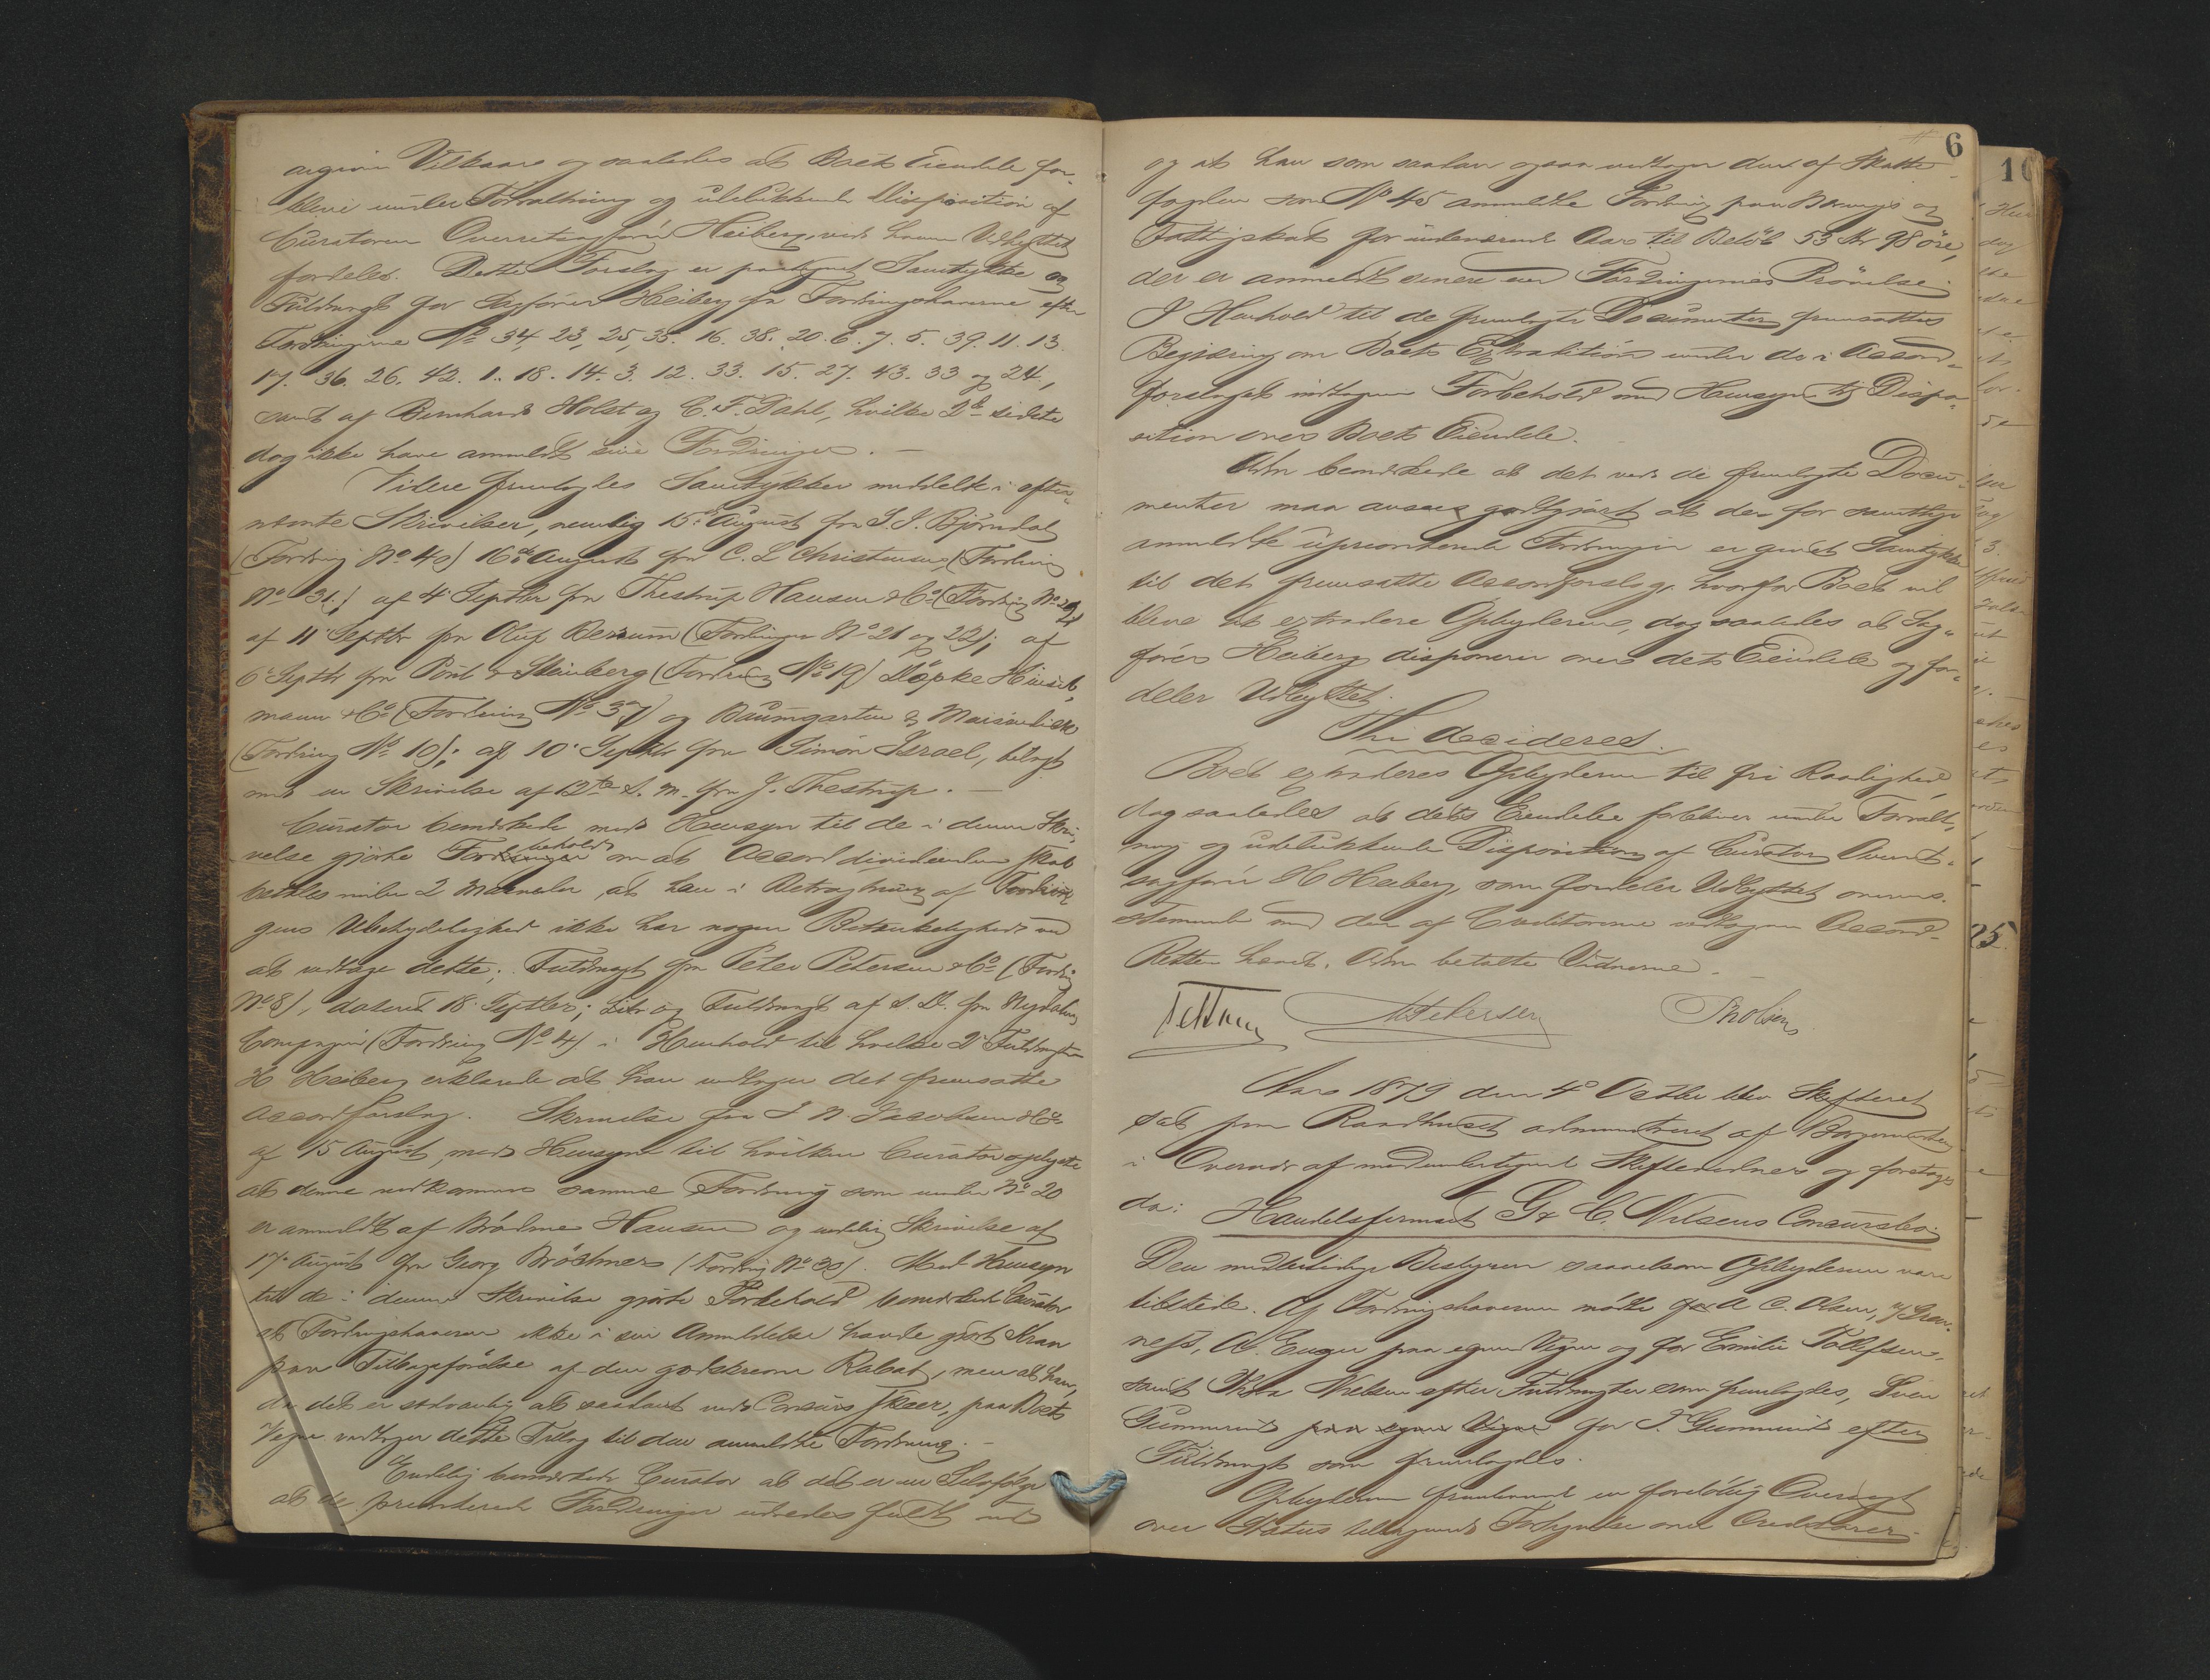 angivne Vilkaar og saaledes at Boets Eiendele for-
blive under Forvaltning og udelukkende Disposition af
Curatoren Overretssagfører Heiberg, ved hvem Udbyttet
fordeles. Dette Forslag er paategnet Samtykke og
Fuldmagt for Sagfører Heiberg fra Fordringshaverne efter
Fordringerne No 34, 23, 25, 35. 16. 38. 20. 6. 7. 5. 39. 11. 13.
17. 36. 26. 42. 1. 18. 14. 3. 12. 33. 15. 27. 43. 33 og 24,
samt af Bernhard Holst og C. F. Dahl, hvilke 2de sidste
dog ikke have anmeldt sine Fordringer. —
Videre fremlagdes Samtykker meddelte i efter-
nævnte Skrivelser, nemlig 15de August fra S. J. Björndal
(Fordring No 40) 16de August fra C. L Christensen, (Fordring
No 31.) af 4de Septbr fra Thestrup Hansen & Co (Fordring No
af 11 Septbr fra Oluf Bersum (Fordringer No 21 og 22); af
6te Septbr fra Pont & Steinberg (Fordring No 19) Döpke Hiersek-
mann & Co (Fordring No 37) og Baumgarten &
(Fordring No 10); af 10de Septbr fra Simon Israel, bilagt
med en Skrivelse af 12te s. m. fra J. Thestrup. —
Curator bemærkede med Hensyn til de i denne Skri-
velse gjorte Forbehold om at Accorddividenden skal
betales inden 2 Maaneder, at han i Betragtning af Fordrin-
gens Ubetydelighed ikke har nogen Betænkelighed ved
at vedtage dette; Fuldmagt fra Peter Petersen & Co (Fordring
No 8), dateret 18 Septbr; Ditto og Fuldmagt af s. D. fra Nydalens
Compagni (Fordring No 4) i Henhold til hvilke 2de Fuldmagter
H Heiberg erklærede at han vedtager det fremsatte
Accordforslag. Skrivelse fra J N Jacobsen & Co
af 15 August, med Hensyn til hvilken Curator oplyste
at denne vedkommer samme Fordring som under No 20
er anmeldt af Brødrene Hansen og endelig Skrivelse af
17de August fra Georg Bröchner (Fordring No 30). Med Hensyn
til de i denne Skrivelse gjorte Forbehold bemærkede Curator
at Fordringshaveren ikke i sin Anmeldelse havde gjort Krav
paa Tilbageförelse af den godskrevne Rabat, men at han,
da det er sædvanlig at saadant ved Concurs skeer, paa Boets
Vegne vedtager dette Tillæg til den anmeldte Fordring. —
Endelig bemærkede Curator at det er en Selvfølge
at de prioriterede Fordringer udredes fuldt ud
6
og at han som saadan ogsaa vedtager den af Skatte-
fogden som No 45 anmeldte Fordring paa Nærings og
Fattigskat for indeværende Aar til Beløb 53 Kr 98 öre,
der er anmeldt senere end Fordringernes Prøvelse.
I Henhold til de fremlagte Documenter fremsattes
Begjæring om Boets Extradition under de i Accord-
forslaget indtagne Forbehold med Hensyn til Dispo-
sition over Boets Eiendele.
Adm bemærkede at det ved de fremlagte Docu-
menter maa ansees godtgjort at der for samtlige
anmeldte uprioriterede Fordringer er givet Samtykke
til det fremsatte Accordforslag, hvorfor Boet vil
blive at extradere Opbyderne, dog saaledes at Sag-
förer Heiberg disponerer over dets Eiendele og for-
deler Udbyttet.
Thi decideres.
Boet extraderes Opbyderne til fri Raadighed,
dog saaledes at dets Eiendele forbliver under Forvalt-
ning og udelukkende Disposition af Curator Overrets-
sagfører H Heiberg, som fordeler Udbyttet overens-
stemmende med den af Creditorerne vedtagne Accord.
Retten hævet. Adm betalte Vidnerne. —
Petersen
Aar 1879 den 4de Octbr blev Skifteret
sat paa Raadhuset administreret af Borgermesteren
i Overvær af medundertegnede Skiftevidner og foretoges
da:
Handelsfirmaet G & C. Nilsens Concursbo.
Den midlertidige Bestyrer saavelsom Opbyderne vare
tilstede. Af Fordringshaverne mödte for A C. Olsen,
A. Enger paa egne Vegne og for Emilie Tollefsen,
samt Nielsen efter Fuldmagter som fremlagdes, Sven
Gummerud paa egne Vegne for J. Gummerud efter
Fuldmagt som fremlagdes.
Opbyderne fremlevered en foreløbig Oversigt
over Status tilligemed Fortegnelse over Creditorer.